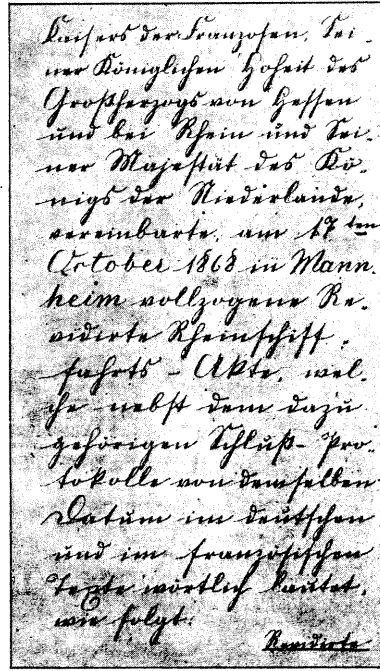 Kaisers der Franzosen, Sei-
ner Königlichen Hoheit des
Großherzogs von Hessen
und bei Rhein und Sei-
ner Majestät des Kö-
nigs der Niederlande,
vereinbarte, am 17ten
October 1868 in Mann-
heim vollzogene Re-
vidirte Rheinschiff-
fahrts-Akte, wel-
che nebst dem dazu
gehörigen Schluß-Pro-
tokolle von demselben
Datum im deutschen
und im französischen
Texte wörtlich lautet,
wie folgt:
Revidirte